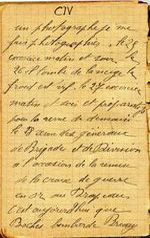 CIV
un photographe je me
fais photographier, le 25
exercice matin et soir le
26 il tombe de la neige le
froid est vif le 27 exercice
matin et soir et préparatifs
pour la revue de demain
le 28 revue des généraux
de Brigade et de Division
a l'occasion de la remise
de la croix de guerre
au 32 au Drapeau
c'est aujourd'hui que
Boches bombarde